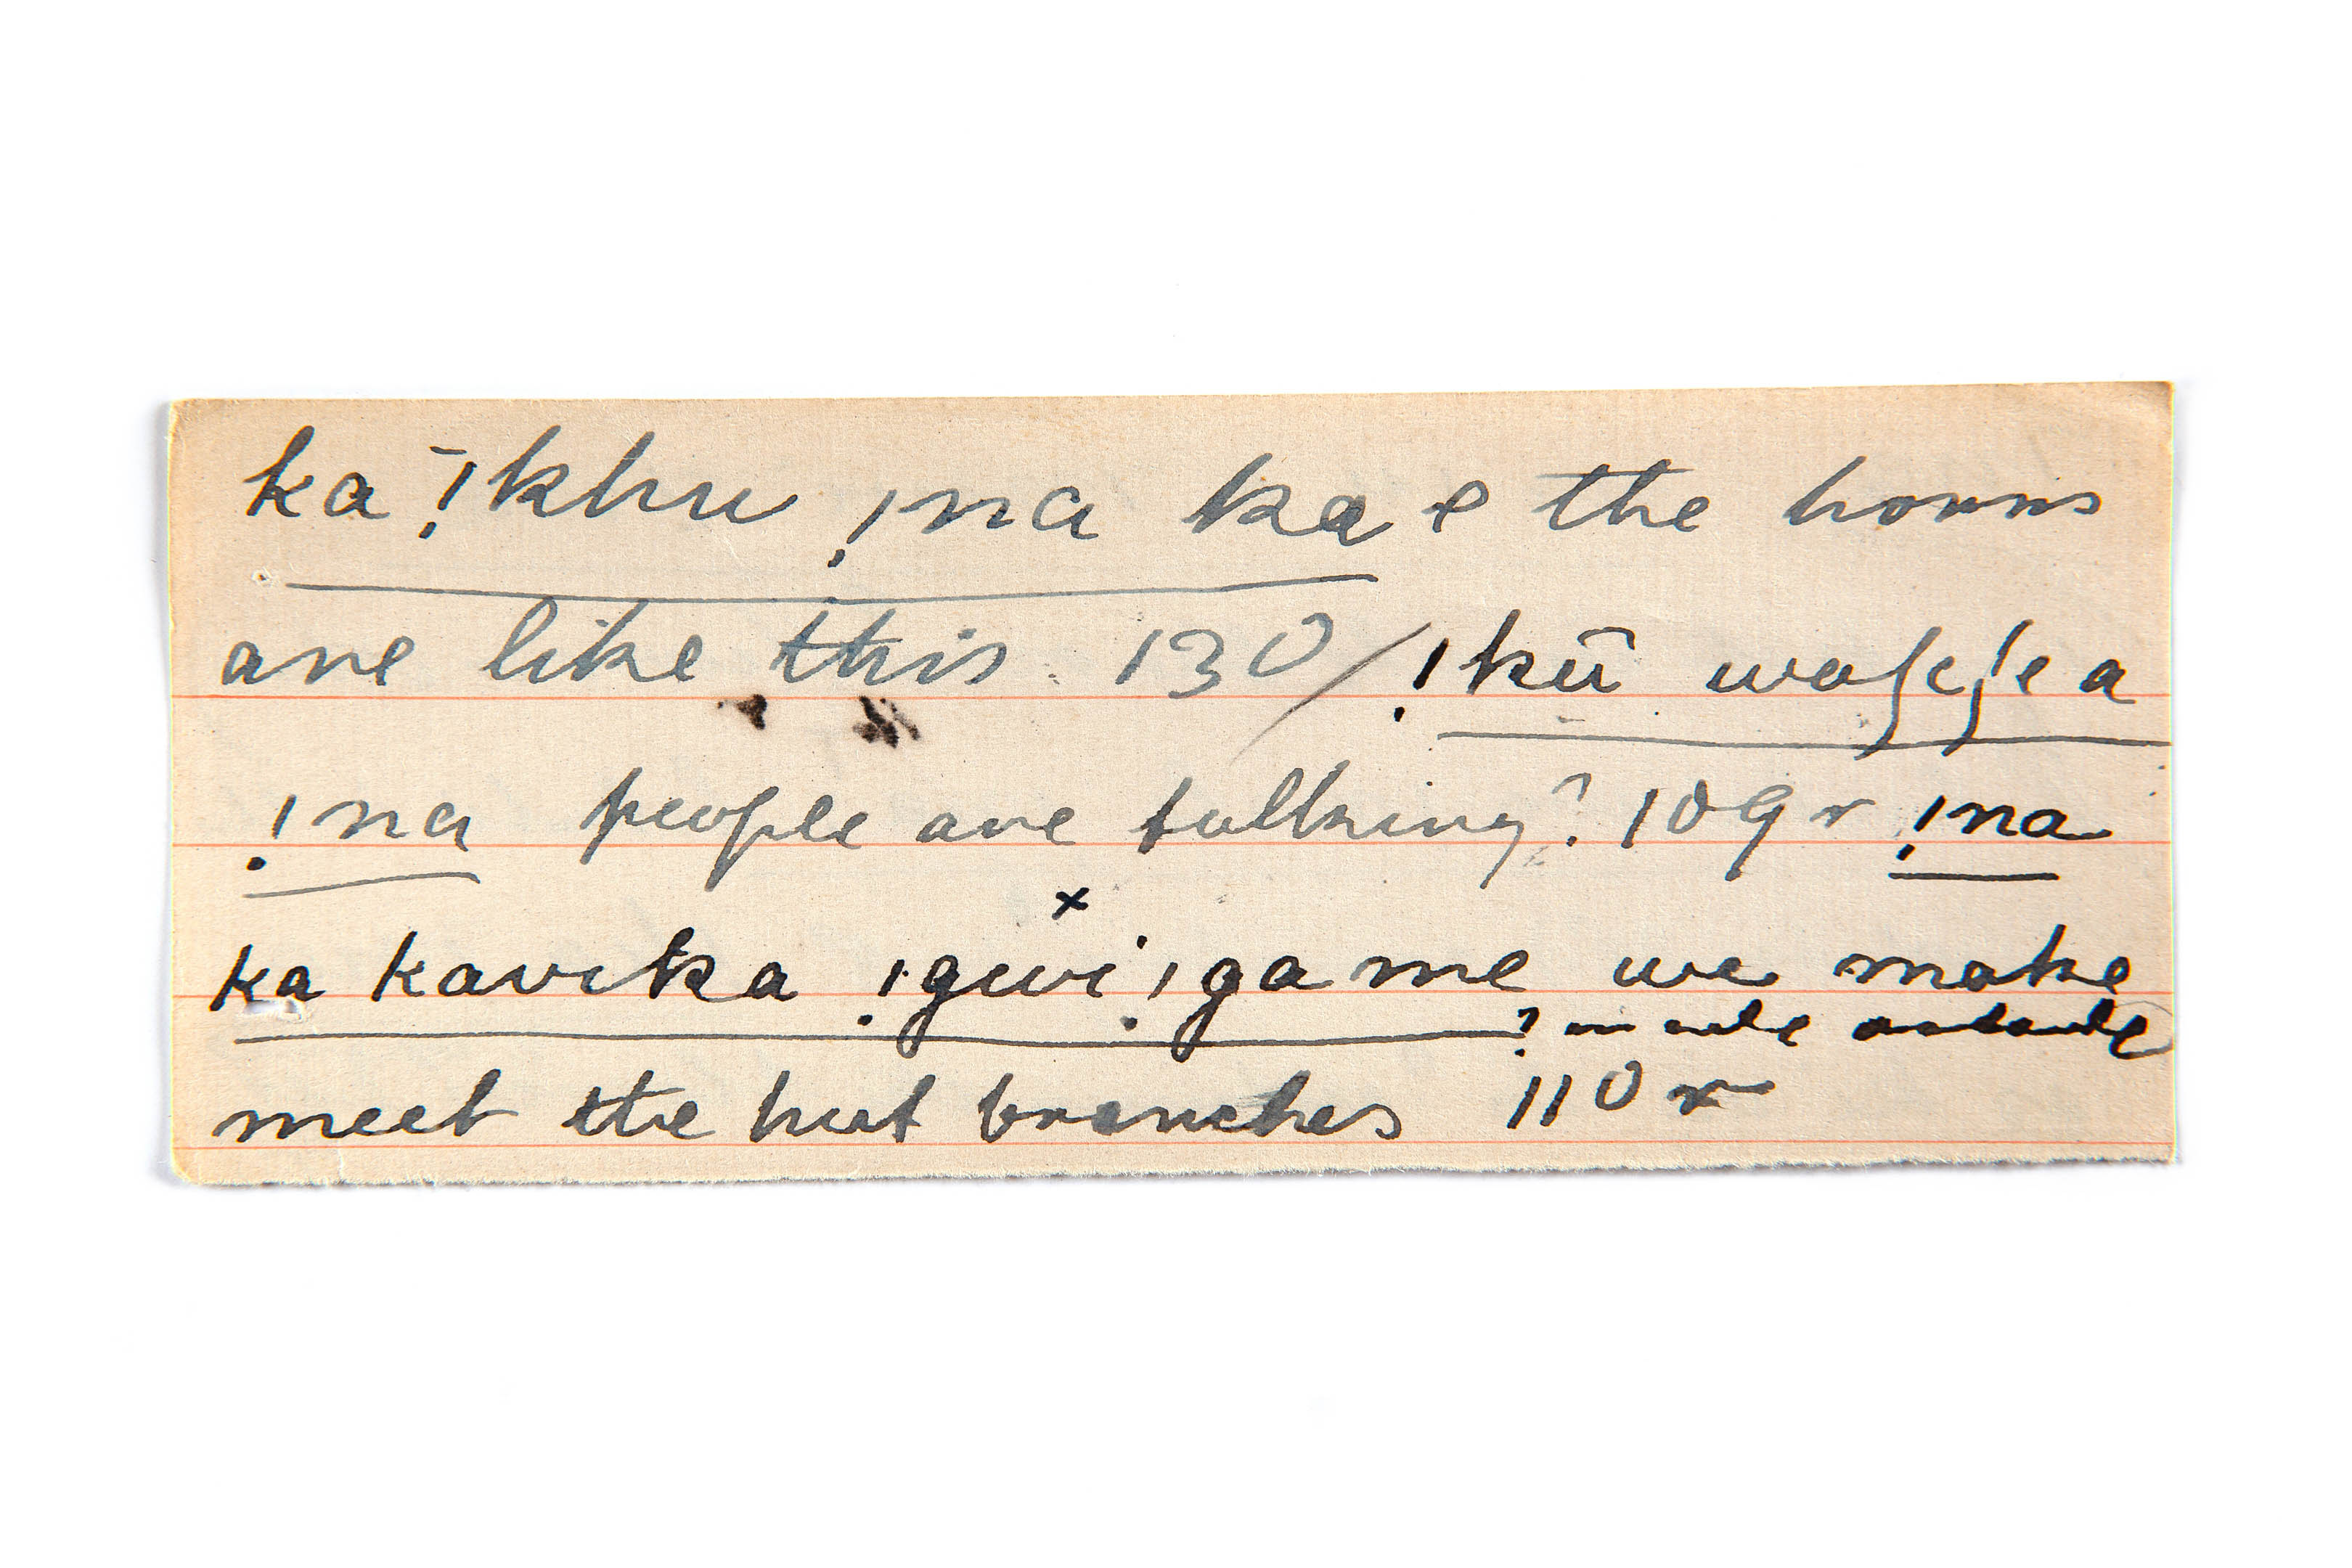 ka !̄khu !na kae the horns
are like this. 130/ !kū
!na people are talking? 109r !na
x
ka kavika !gwi !game we make
meet the hut branches 110r